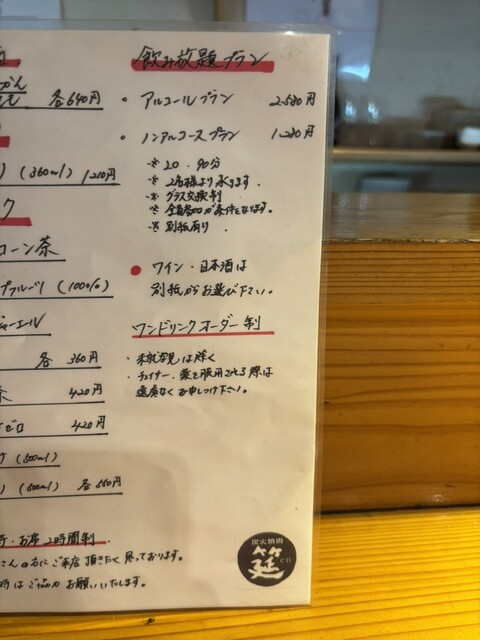 各640円
(360ml) 1210円
ク
コーン茶
(100%)
ジャーエール
各 360円
茶 420円
ゼロ 420円
(500ml)
(500ml) 各560円
お席2時間制
さんの方にご来店頂きたく思っております。
時はご協力お願いいたします。
飲み放題プラン
・アルコールプラン 2.580円
・ノンアルコースプラン 1.280円
※ 20. 90分
※ 2名様より承ります.
※ グラス交換制
※ 全員参加が条件となります。
※ 別紙有り.
● ワイン・日本酒は
別紙からお選び下さい。
ワンドリンクオーダー制
・未就学児は除く
・チェイサー・薬を服用される際は
遠慮なくお申しつけ下さい。
炭火焼肉
筵